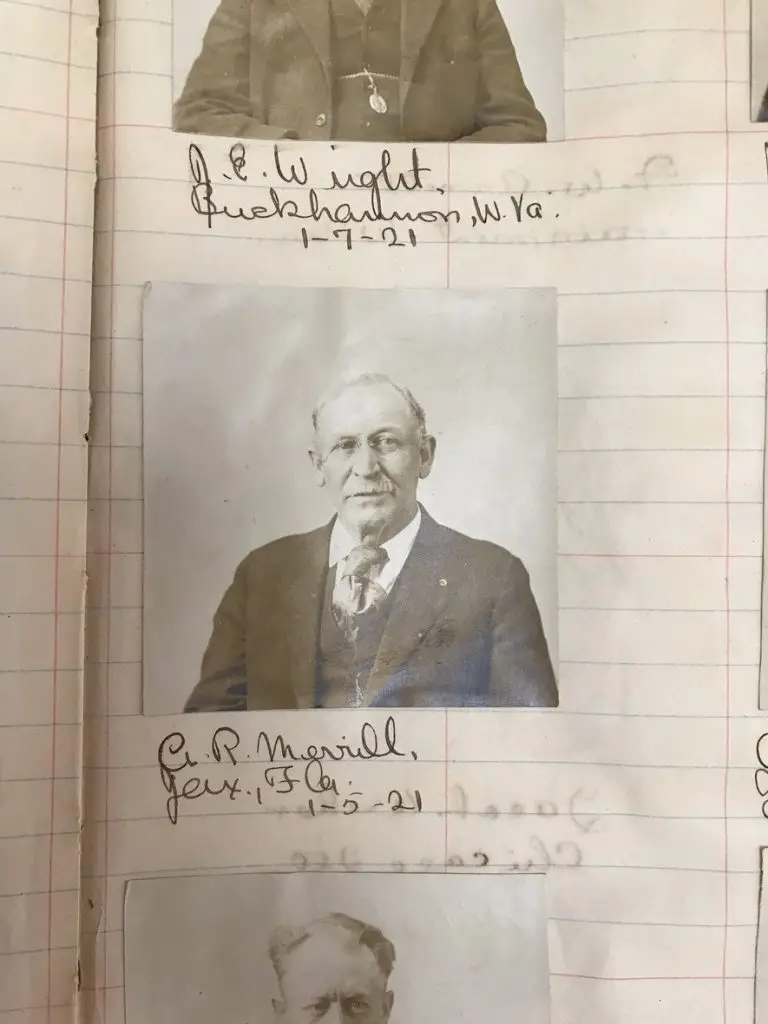 J. E. Wright,
Buckhannon, W. Va.
1-7-21
A. R. Merrill,
Jax., Fla.
1-5-21
Chicago